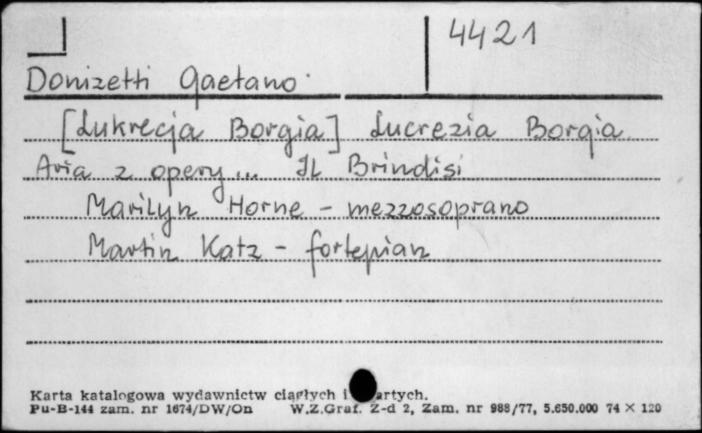 4421
Donizetti Gaetano
[Lukrecja Borgia] Lucrezia Borgia
Aria z opery... Il Brindisi
Marilyn Horne - mezzosoprano
Martin Katz - fortepian
Karta katalogowa wydawnictw ciągłych i
Pu-B-144 zam. nr 1674/DW/On W.Z.Graf. Z-d 2, Zam. nr 988/77, 5.650.000 74 X 120